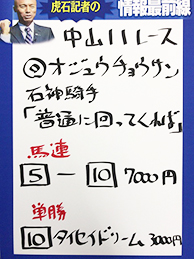 虎石記者の
情報最前線
中山11レース
◎オジュウチョウサン
石神騎手
「普通に回ってくれば」
馬連
5-10 7000円
単勝
10 タイセイドリーム 3000円